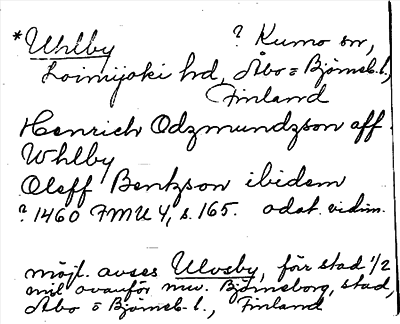 *Uhlby ? Kumo sn,
Loimijoki hd, Åbo = Björneb. l.,
Finland
Henrich Odzmundzson aff
Whlby
Oleff Bentzson ibidem
? 1460 FMU 4, s. 165. odat. vidim.
möjl. avses Ulvsby, förstad 1/2
mil ovanför nuv. Björneborg, stad,
Åbo o Björneb. l., Finland